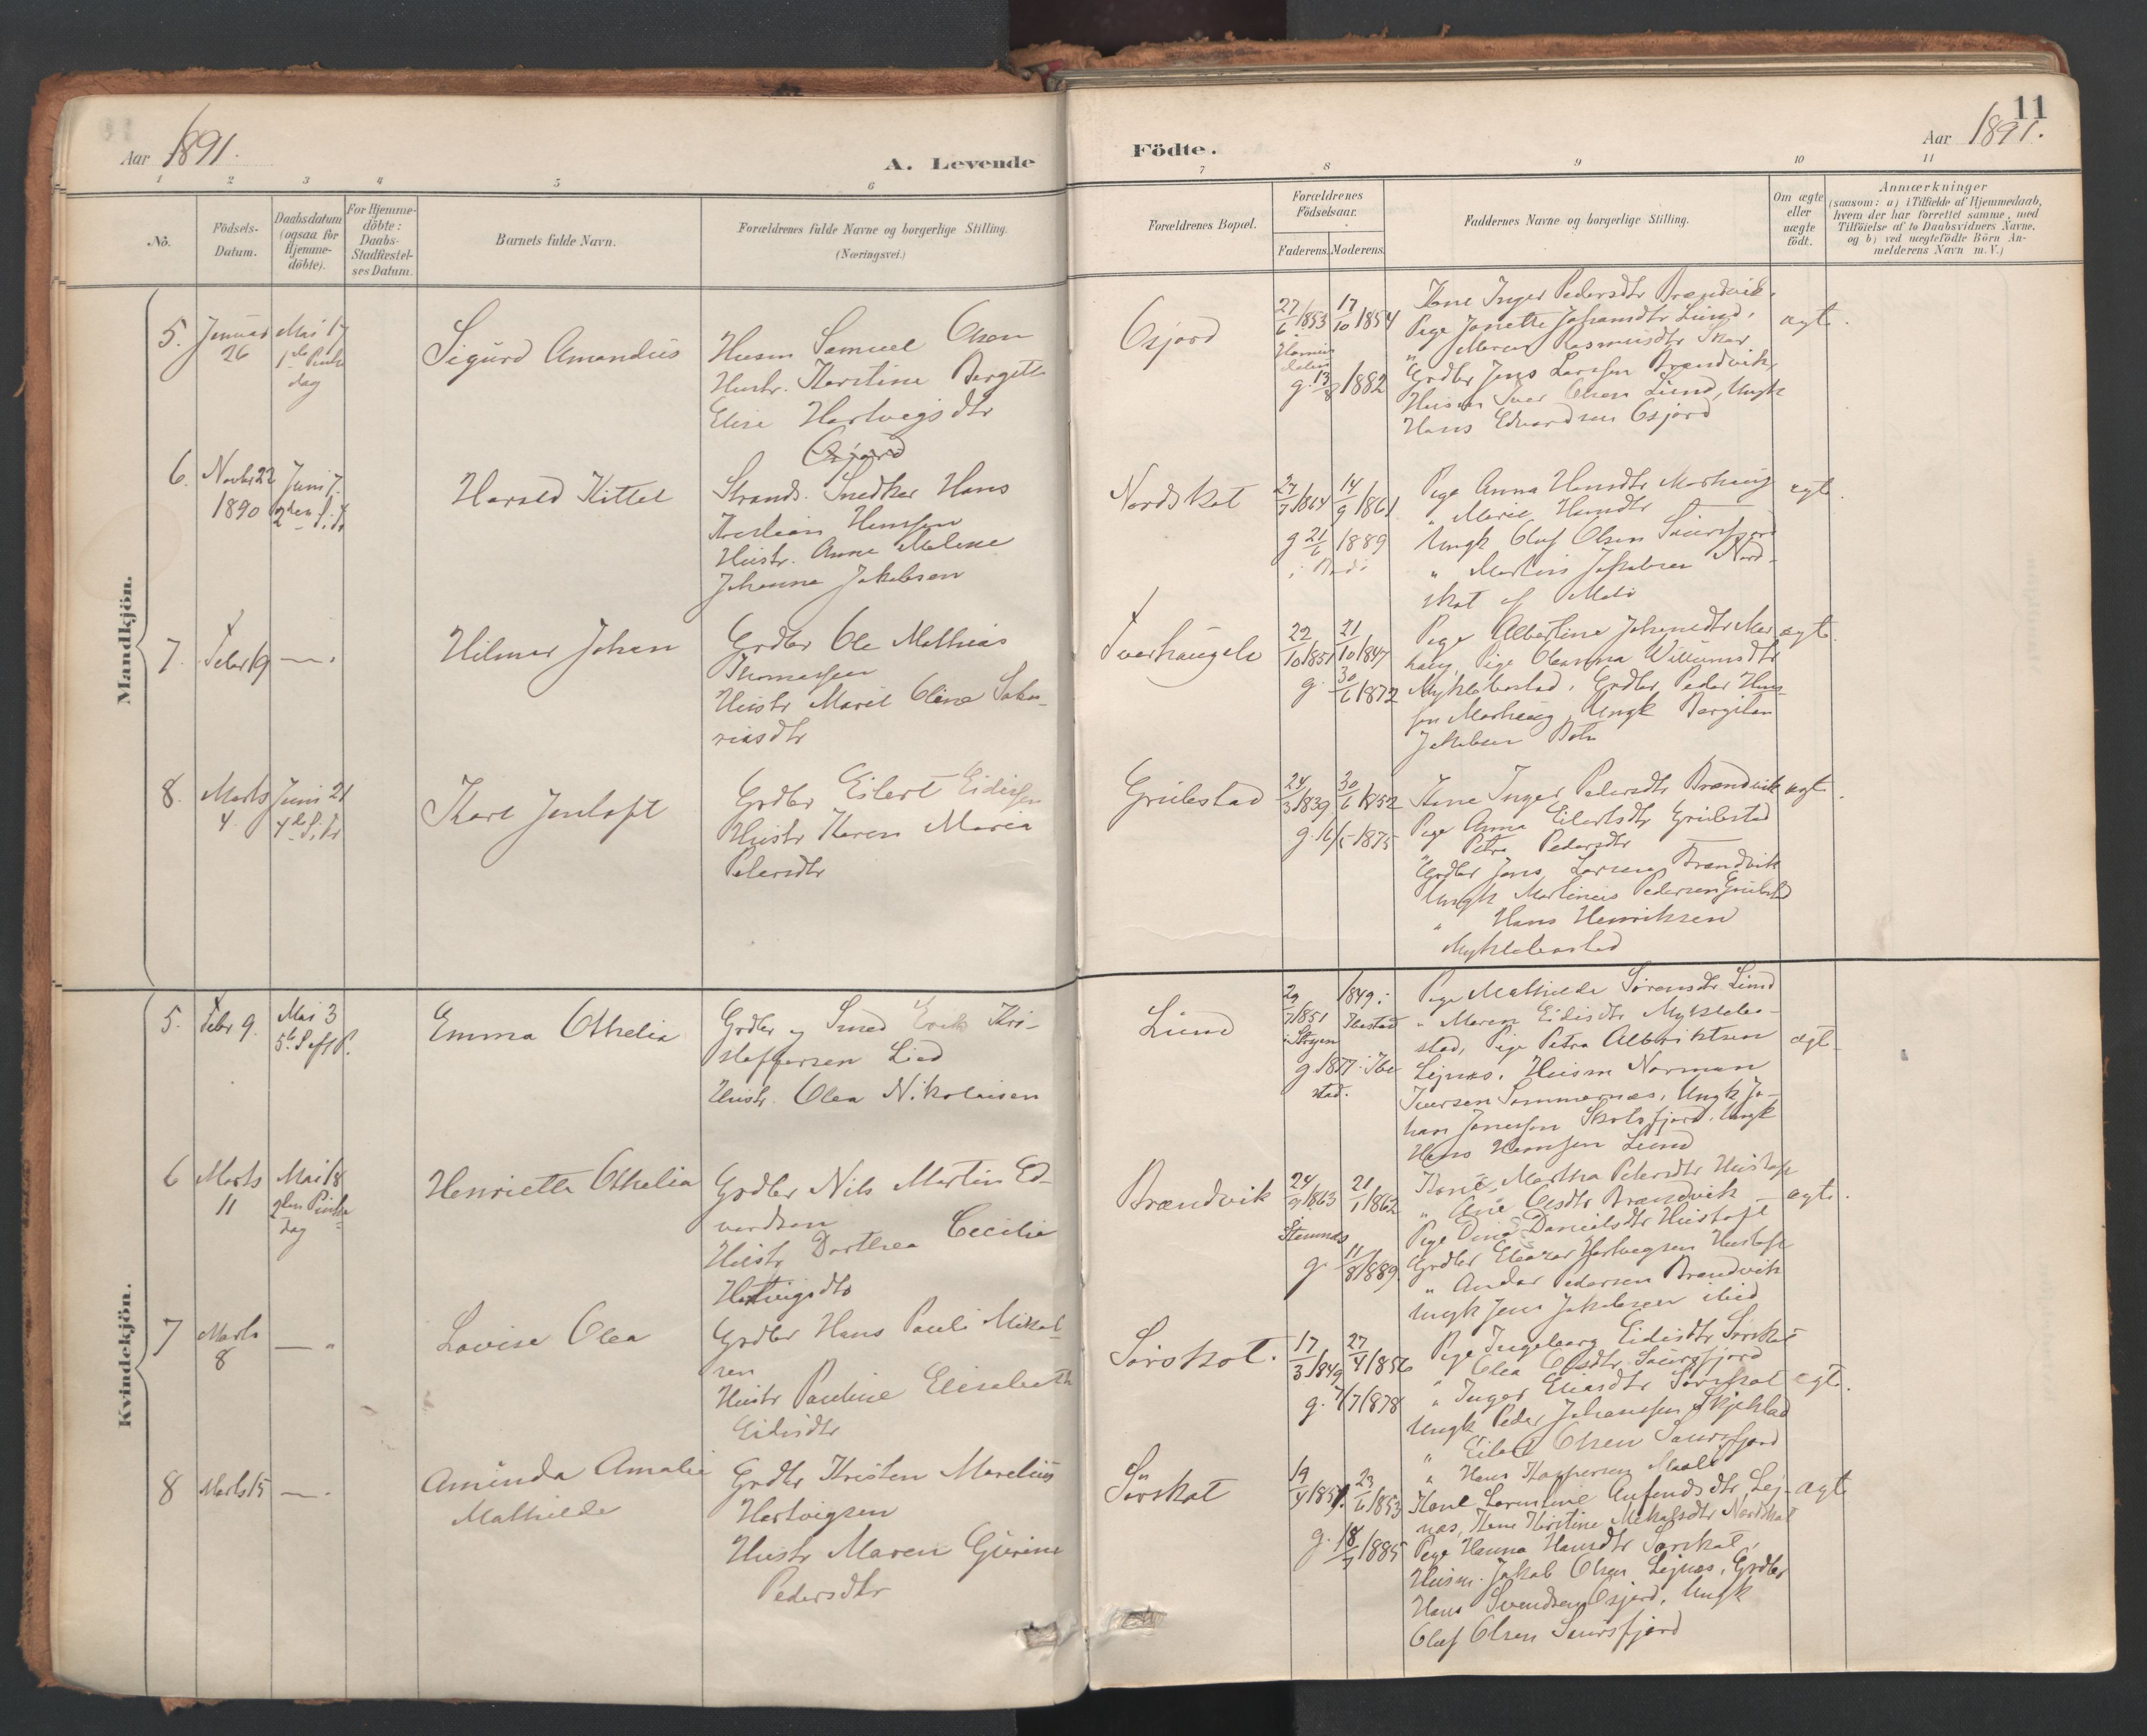 11
Aar 1891.
A. Levende
Födte.
Aar 1891.
1 2 3 4 5 6 7 8 9 10 11
No.
Födsels-
Datum.
Daabsdatum
(ogsaa for
Hjemme-
döbte).
For Hjemme-
döbte:
Daabs-
Stadfæstel-
ses Datum.
Barnets fulde Navn.
Forældrenes fulde Navne og borgerlige Stilling.
(Næringsvei.)
Forældrenes Bopæl.
Forældrenes
Födselsaar.
Faderens.
Moderens.
Faddernes Navne og borgerlige Stilling.
Om ægte
eller
uægte
födt.
Anmærkninger
(saasom: a) i Tilfælde af Hjemmedaab,
hvem der har forrettet samme, med
Tilföielse af to Daabsvidners Navne,
og b) ved uægtefödte Börn An-
melderens Navn m.V.)
Mandkjön.
5.
Januar
26
Mai 17
1ste Pintse
dag
Sigurd Amandus
Husm Samuel Olsen
Hustr. Kerstine Bergett
Elise Hartvigsdtr
Osjord
Osjord
27/6 1853
17/10 1854
g. 13/8 1882
Kone Inger Pedersdtr Brændvik.
Pige Janette Johansdtr Lund,
" Maren Rasmusdtr Skar
Grdbr Jens Larssen Brændvik,
Husm Iver Olsen Lund, Ungk
Hans Edvardsen Osjord
ægte.
6.
Novbr 22
1890
Juni 7.
2den S. Tr
Harald Kittel
Strands. Snedker Hans
Kristian Hanssen
Hustr. Anne Malene
Johanna Jakobsen
Nordskot
27/7 1864
14/9 1861
g 21/6 1889
i Bodø
Pige Anna Hansdtr Marhaug
" Marie Hansdtr
Ungk Oluf Olsen Saursfjord
" Martin Jakobsen Nord-
skot
ægte.
7.
Febr 19
— .
Hilmar Johan
Grdbr Ole Mathias
Thomassen
Hustr Marit Oline Saka-
riasdtr
Tverhaugele
22/10 1851
21/10 1847
g. 30/6 1872
Pige Albertine Johansdtr Mar
haug, Pige Oleanna Willumsdtr
Myklebostad, Grdbr Peder Hans-
sen Marhaug, Ungk Bergiton
Jakobsen
ægte.
8.
Marts
4.
Juni 21
4de S. Tr
Karl Jentoft
Grdbr Eilert Eidissen
Hustr Karen Maria
Pedersdtr
Grubestad
24/3 1839
30/6 1852
g. 16/5 1875
Kone Inger Pedersdtr Brændvik
Pige Anna Eilertsdtr Grubestad
" Petra Pedersdtr
Grdbr Jens Larssen Brændvik
Ungk Martinus Pedersen Grubestad
" Hans Henriksen
Myklebostad
ægte.
Kvindekjön.
5.
Febr 9.
Mai 3
5te S. eft P.
Emma Othelia
Grdbr og Smed Erik Kri-
stoffersen Lied
Hustr. Olea Nikolaisen
Lund
29/7 1851
i Steigen
1849 i
Ibestad
g. 1877 i Ibe
stad.
Pige Mathilde Sørensdtr Lund
" Maren Eidisdtr Myklebo-
stad, Pige Petra Albriktsen
Lejnæs, Husm Norman
Iversen Sommernæs, Ungk Jo-
han Jonassen Skotsfjord, Ungk
Hans Hanssen Lund
ægte
6
Marts
11
Mai 18
2den Pintse
dag
Henriette Othelia
Grdbr Nils Martin Ed-
vardsen
Hustr Dorthea Cecilie
Hartvigsdtr
Brændvik
24/9 1863
21/1 1862
g. 11/8 1889
Kone Martha Pedersdtr Hustoft
" Ane Olsdtr Brændvik
Pige Dina Danielsdtr Hustoft
Grdbr Eleazar Hartvigsen Hustoft
" Andor Pedersen Brændvik
Ungk Jens Jakobsen ibid
ægte.
7
Marts
8
— "
Lovise Olea
Grdbr Hans Pauli Mikal-
sen
Hustr Pauline Elisabeth
Eidisdtr
Sørskot.
17/3 1849
27/4 1856
g. 7/7 1878
Pige Ingeborg Eidisdtr Sørskot
" Olea Olsdtr Saursfjord
" Inger Eliasdtr Sørskot
Ungk Peder Johanssen
" Eilert Olsen Saursfjord
" Hans Kaspersen
ægte.
8
Marts 15
— .
Aminda Amalie
Mathilde
Grdbr Kristen Marelius
Hartvigsen
Hustr Maren Gurine
Pedersdtr
Sørskot
19/4 1851.
23/6 1853
g. 18/7 1885
Kone Lorentine Aufindsdtr Lej-
næs, Kone Kirstine Mikalsdtr Nordskot
Pige Hanna Hansdtr Sørskot,
Husm. Jakob Olsen Lejnæs, Grdbr
Hans Svendsen Osjord, Ungk
Oluf Olsen Saursfjord
ægte